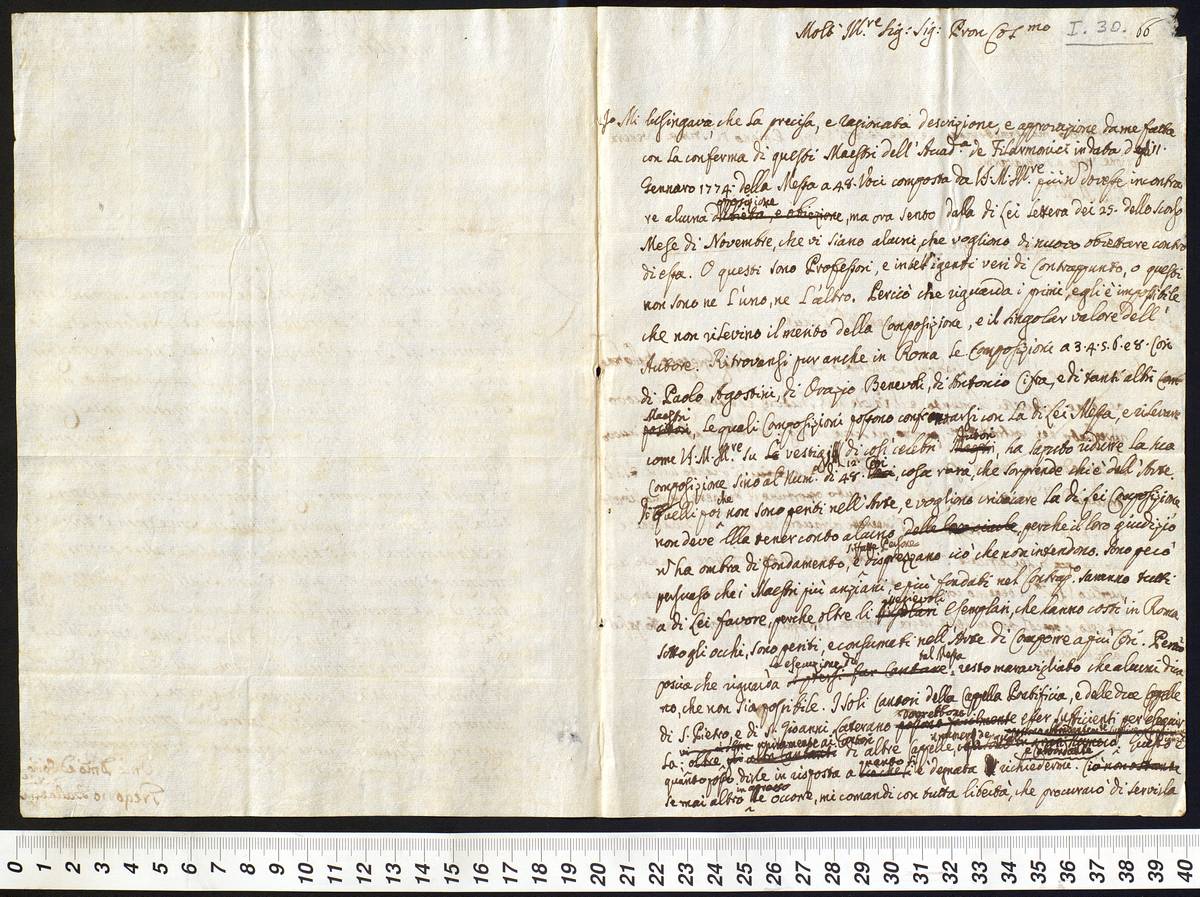 Molt' Ill.re Sig: Sig: Pron Col.mo I. 30. 66
Jo Mi lusingava, che la precisa, e ragionata descrizione, e approvazione da me fatta
con la conferma di questi Maestri dell'Accad.a de Filarmonici in data degl'11.
Gennaro 1774. della Messa a 48. Voci composta da V.S.M.Ill.re più ñ dovesse incontra
opposizione
re alcuna, e obiezione, ma ora sento dalla di Lei Lettera dei 25. dello scorso
Mese di Novembre, che vi siano alcuni, che vogliono di nuovo obiettare contro
di essa. O questi sono Professori, e intelligenti veri di Contrappunto, o questi
non sono ne l'uno, ne l'altro. Perciò che riguarda i primi, egli è impossibile
che non rilevino il merito della Composizione, e il singolar valore dell'
Autore. Ritrovansi pur anche in Roma le Composizioni a 3. 4. 5. 6. e 8. Cori
di Paolo Agostini, di Orazio Benevoli, di Antonio Cifra, e di tanti altri
Maestri
, le quali Composizioni possono confrontarsi con la di Lei Messa, e rilevare
Autori
come V.S.M.Ill.re su le vestigia di così celebri Maestri, ha saputo ridurre la sua
12. Cori
Composizione sino al Num.o di 48. cosa rara, che sorprende chi è dell'Arte.
che
Di quelli poi non sono periti nell'Arte, e vogliono criticare la di Lei Composizione
non deve Ella tener conto alcuno, perche il loro giudizio
simili Persone
ñ ha ombra di fondamento, e disprezzano ciò che non intendono. Sono però
persuaso che i Maestri più anziani, e più fondati nel Contrap.o saranno tutti
a di Lei favore, perche oltre li esemplari, che hanno costì in Roma
sotto gli occhi, sono periti, e consumati nell'Arte di Comporre a più Cori. Per ciò
la esecuzione di tal Messa
poscia che riguarda, resto maravigliato che alcuni dica
no, che non sia possibile. I soli Cantori della Cappella Pontificia, e delle due Cappelle
dovrebbono
di S. Pietro, e di S. Giovanni Laterano possono facilmente esser sufficienti per eseguir
la; di altre Cappelle
quanto
quanto posso dirle in risposta a si è degnata richiedermi. Ciò non ostante
in appresso
se mai altro le occorre, mi comandi con tutta libertà, che procurarò di servirla